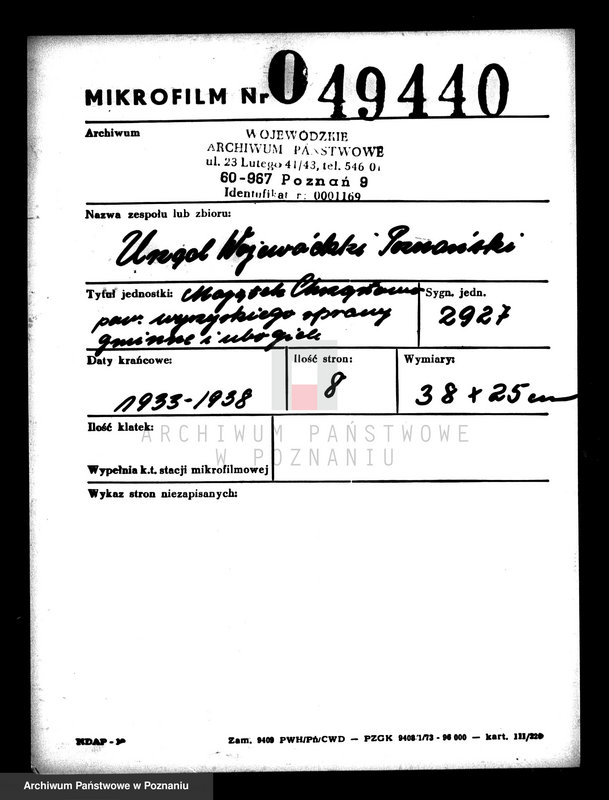 MIKROFILM Nr 049440
Archiwum
WOJEWÓDZKIE
ARCHIWUM PAŃSTWOWE
ul. 23 Lutego 41/43, tel. 546 01
60-967 Poznań 9
Identyfikat r: 0001169
Nazwa zespołu lub zbioru:
Urząd Wojewódzki Poznański
Tytuł jednostki: Majątek Chrząstowo
pow. wyrzyskiego sprawy
gminne i ubogich
Sygn. jedn.
2927
Daty krańcowe:
1933-1938
Ilość stron:
8
Wymiary:
38 x 25 cm
Ilość klatek:
ARCHIWUM PAŃSTWOWE
W POZNANIU
Wypełnia k.t. stacji mikrofilmowej
Wykaz stron niezapisanych:
NDAP -
Zam. 9408 PWH/Pń/CWD — PZGK 9408/1/73 - 96 000 — kart. III/220
Archiwum Państwowe w Poznaniu